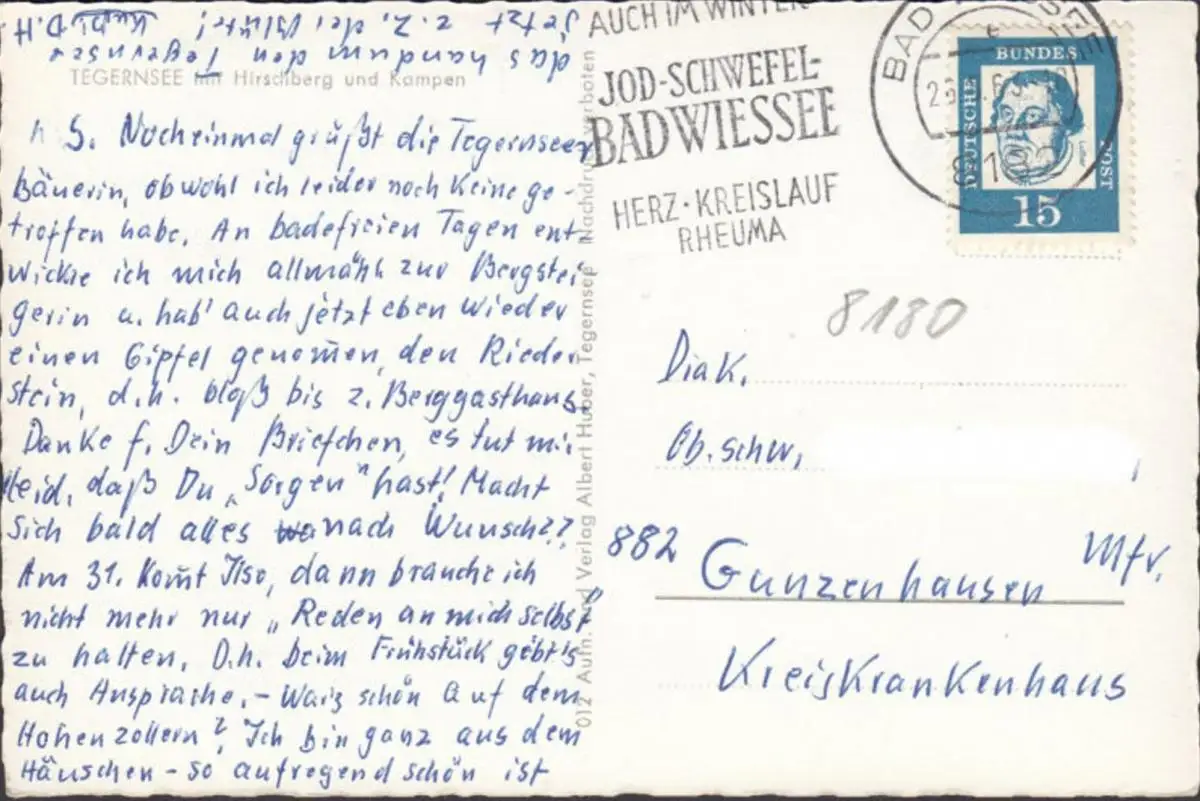 TEGERNSEE mit Hirschberg und Kampen
L. S. Nocheinmal grüßt die Tegernseer
Bäuerin, obwohl ich leider noch keine ge-
troffen habe. An badefreien Tagen ent
wickle ich mich allmähl. zur Bergstei
gerin u. hab' auch jetzt eben wieder
einen Gipfel genom̄en, den Rieder
stein, d.h. bloß bis z. Berggasthaus.
Danke f. Dein Briefchen, es tut mir
leid, daß Du „Sorgen" hast! Macht
sich bald alles nach Wunsch??
Am 31. kom̄t Ilse, dann brauche ich
nicht mehr nur „Reden an mich selbst"
zu halten. D.h. beim Frühstück gebt's
auch Ansprache. – War's schön auf dem
Hohenzollern? Ich bin ganz aus dem
Häuschen – so aufregend schön ist
das handum den Tegernsee
jetzt z. Z. der Blüte! D.H
012 Aufn. und Verlag Albert Huber, Tegernsee Nachdruck verboten
AUCH IM WINTER
JOD-SCHWEFEL-
BAD WIESSEE
HERZ · KREISLAUF
RHEUMA
BAD WIESSEE
8182
DEUTSCHE BUNDESPOST
15
8180
Diak.
Ob. schw.
882 Gunzenhausen Mfr.
Kreiskrankenhaus